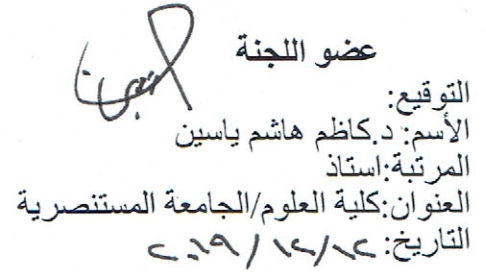 عضو اللجنة
التوقيع:
الأسم: د.كاظم هاشم ياسين
المرتبة:استاذ
العنوان:كلية العلوم/الجامعة المستنصرية
التاريخ: ٢٠١٩/١٢/١٢